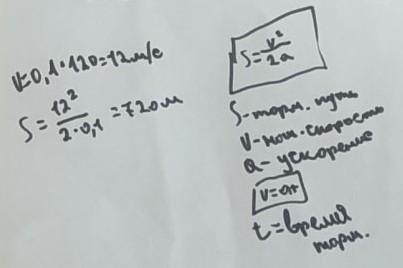 V=0,1•120=12м/с
S=12²/2•0,1=720м
S=V²/2a
S-торм. путь
V-нач. скорость
a-ускорение
V=at
t=время
торм.